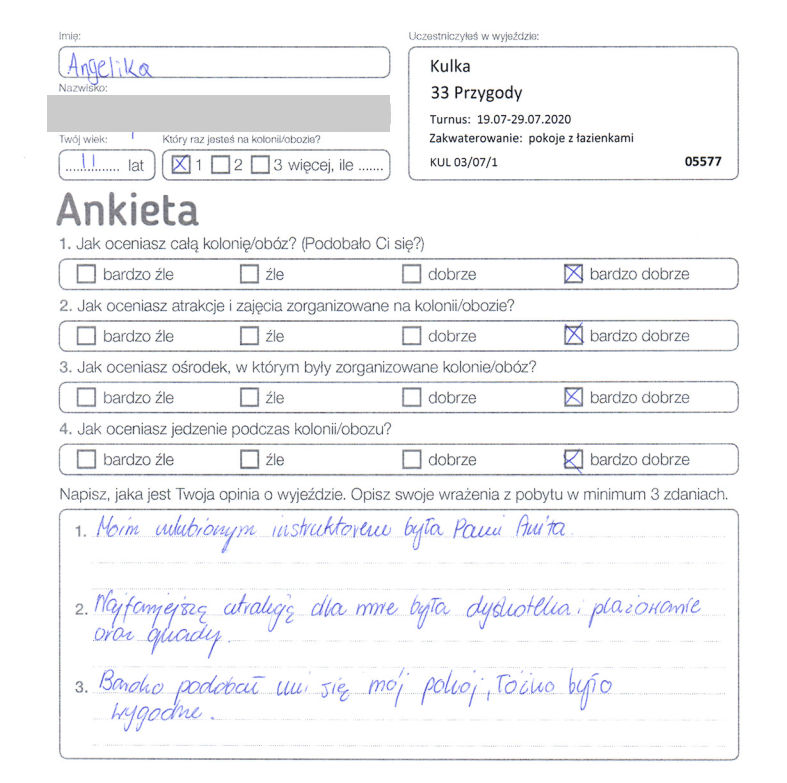 Imię:
Angelika
Nazwisko:
Twój wiek:
11 lat
Który raz jesteś na kolonii/obozie?
1 2 3 więcej, ile .......
Uczestniczyłeś w wyjeździe:
Kulka
33 Przygody
Turnus: 19.07-29.07.2020
Zakwaterowanie: pokoje z łazienkami
KUL 03/07/1 05577
Ankieta
1. Jak oceniasz całą kolonię/obóz? (Podobało Ci się?)
bardzo źle źle dobrze bardzo dobrze
2. Jak oceniasz atrakcje i zajęcia zorganizowane na kolonii/obozie?
bardzo źle źle dobrze bardzo dobrze
3. Jak oceniasz ośrodek, w którym były zorganizowane kolonie/obóz?
bardzo źle źle dobrze bardzo dobrze
4. Jak oceniasz jedzenie podczas kolonii/obozu?
bardzo źle źle dobrze bardzo dobrze
Napisz, jaka jest Twoja opinia o wyjeździe. Opisz swoje wrażenia z pobytu w minimum 3 zdaniach.
1. Moim ulubionym instruktorem była Pani Anita.
2. Najfajniejszą atrakcją dla mnie była dyskoteka i plażowanie
oraz quady.
3. Bardzo podobał mi się mój pokój, łóżko było
wygodne.